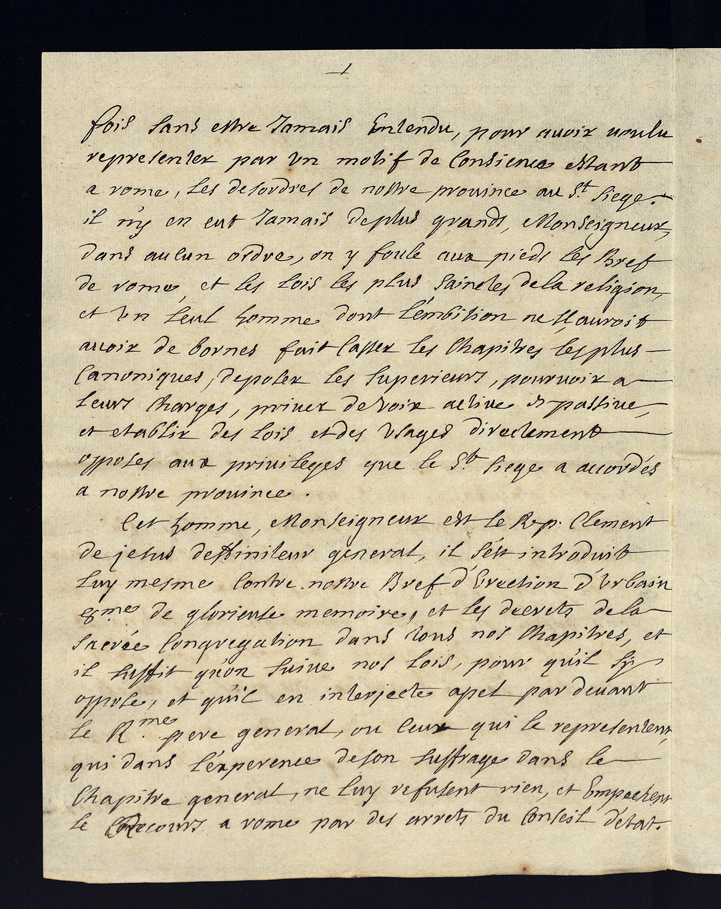 fois sans estre Jamais Entendu, pour auoir uoulu
representer par Vn motif de Consience estant
a rome, les desordres de nostre prouince au St. siege.
il n'y en eut Jamais de plus grands, Monseigneur,
dans aucun ordre, on y foule aux pieds les Bref
de rome, et les Lois les plus sainctes de la religion,
et Vn seul homme dont l'embition ne sçauroit
auoir de bornes fait Casser les Chapitres les plus
Canoniques, deposer les superieurs, pouruoir a
leurs Charges, priuer de Voix actiue et passiue,
et etablir des Lois et des Usages directement
opposes aux priuileges que le St. siege a accordés
a nostre prouince.
Cet homme, Monseigneur est le R. p. Clement
de jesus deffiniteur general, il s'est introduit
Luy mesme Contre nostre Bref d'Erection d'Urbain
8me. de glorieuse memoire, et les decrets de la
sacrée Congregation dans tous nos Chapitres, et
il suffit qu'on suiue nos lois, pour qu'il s'y
oppose, et qu'il en interjecte apel par deuant
le Rme. pere general, ou Ceux qui le representent,
qui dans l'experence de son suffrage dans le
Chapitre general, ne luy refusent rien, et Empechent
le Recours a rome par des arrets du Conseil d'état.